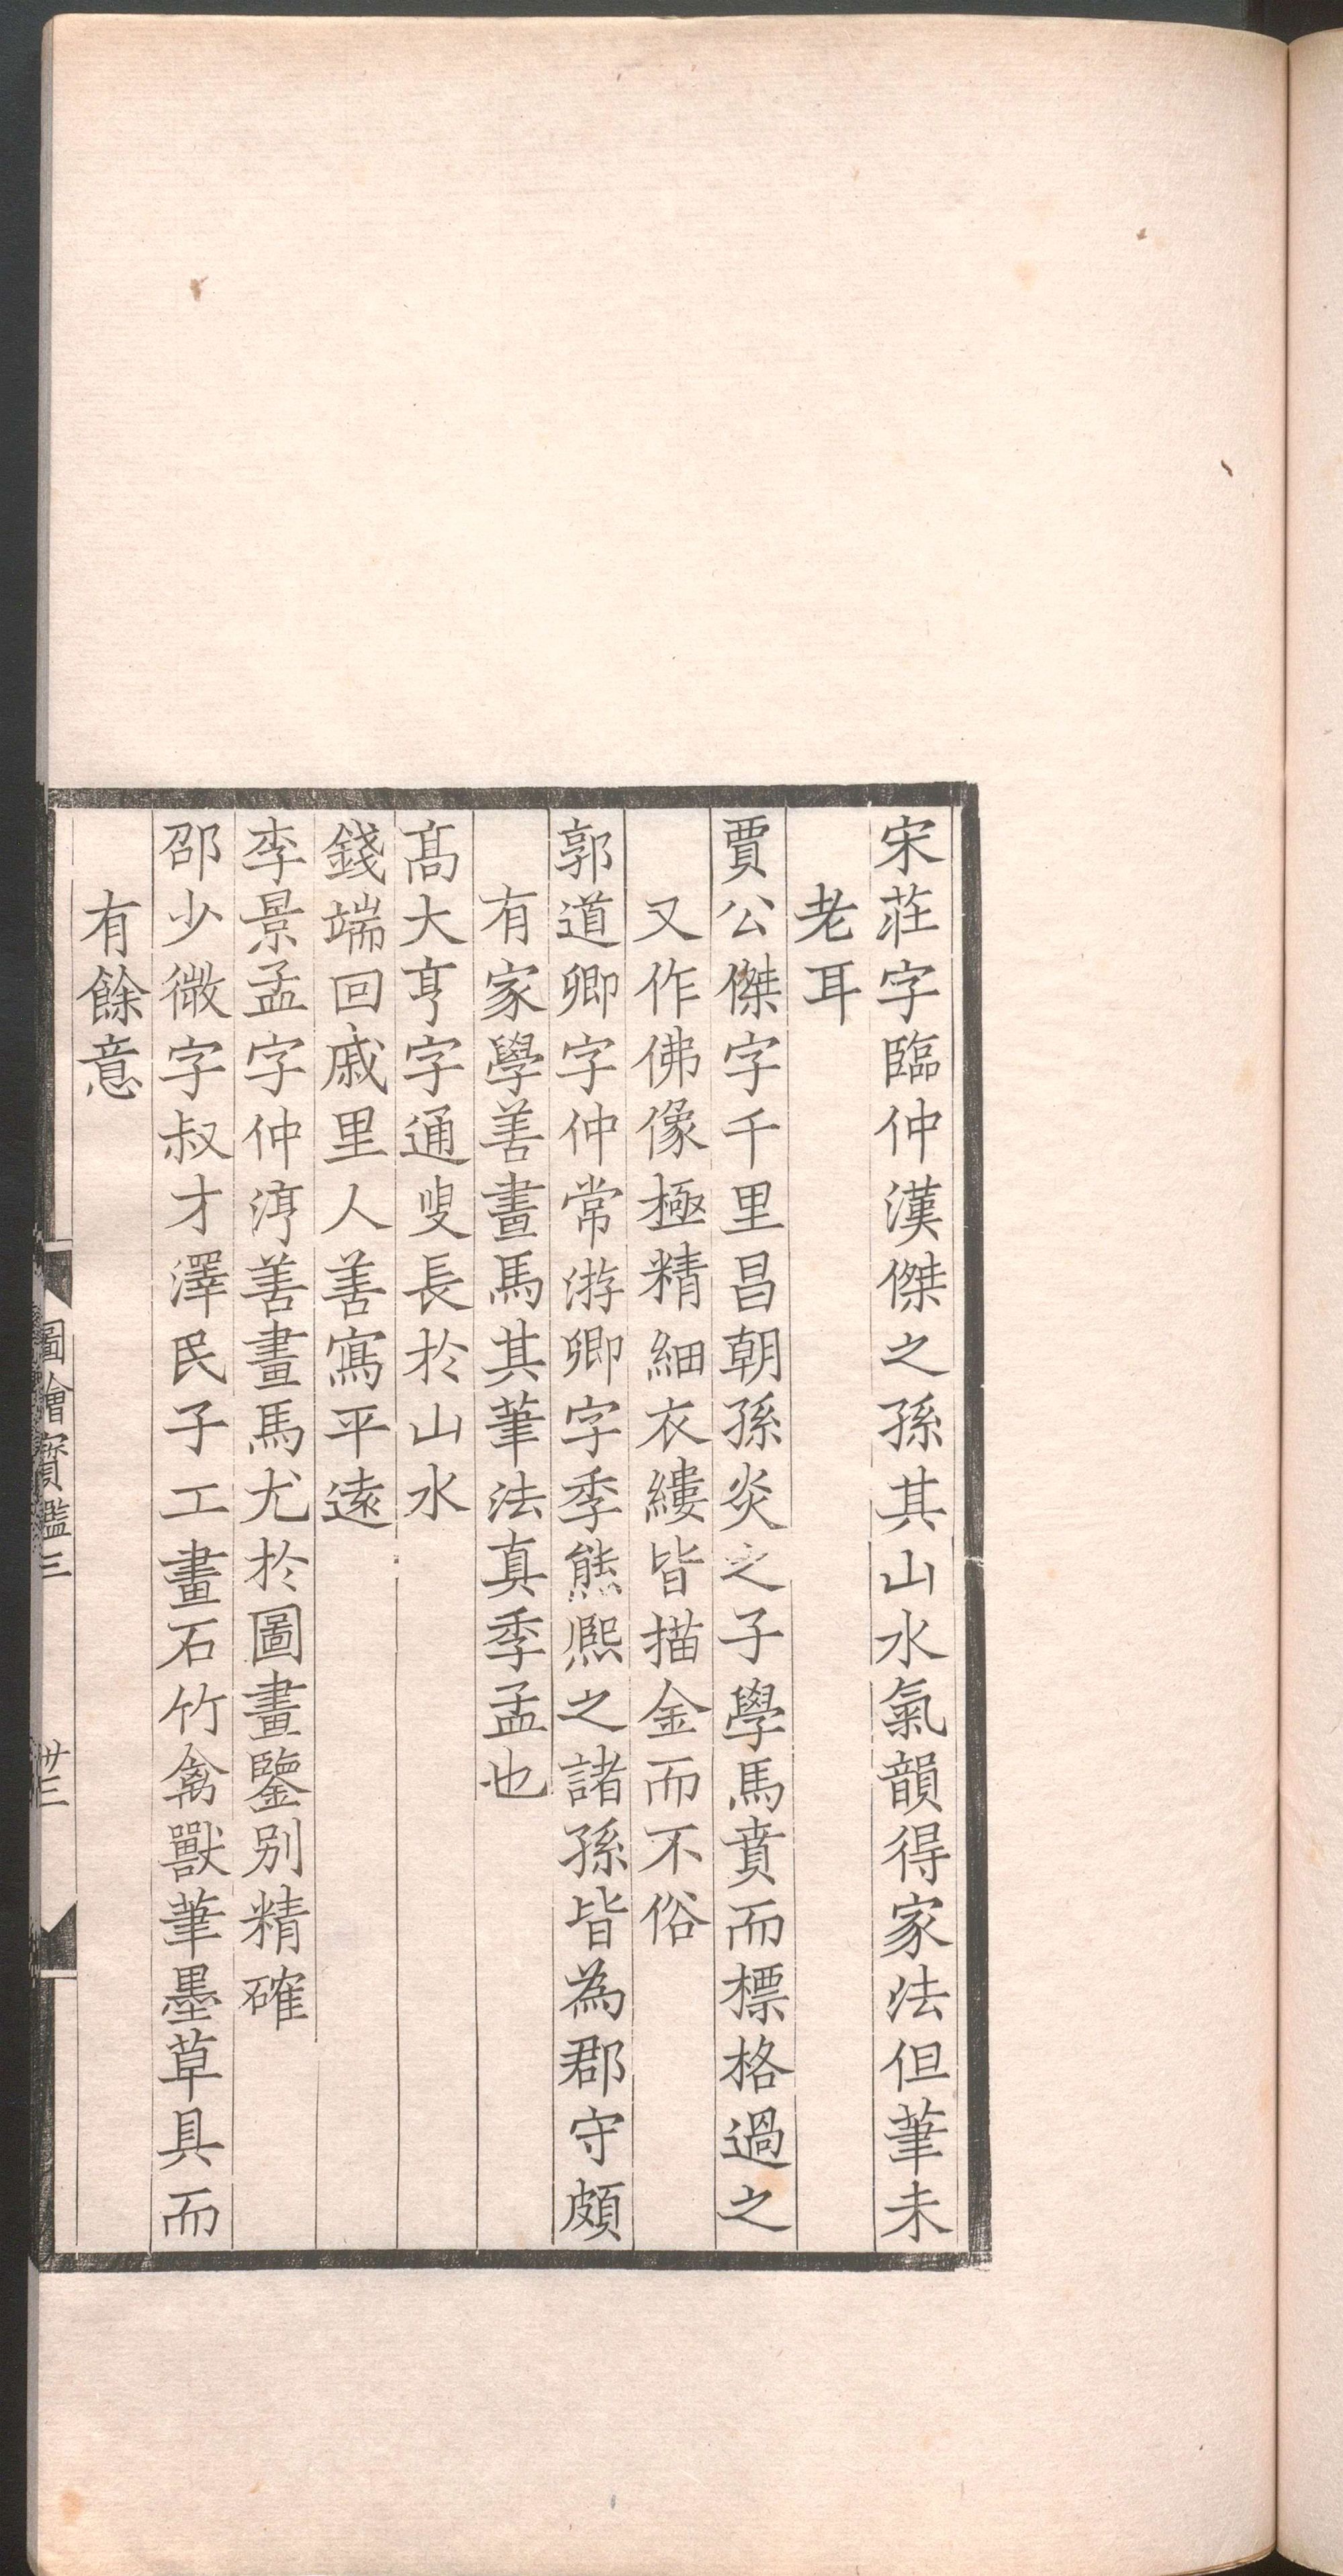 宋莊字臨仲漢傑之孫其山水氣韻得家法但筆未
老耳
賈公傑字千里昌朝孫炎之子學馬賁而標格過之
又作佛像極精細衣縷皆描金而不俗
郭道卿字仲常游卿字季熊熈之諸孫皆為郡守頗
有家學善畫馬其筆法真季孟也
髙大亨字通叟長於山水
錢端回戚里人善寫平遠
李景孟字仲渟善畫馬尤於圖畫鑒别精確
邵少微字叔才澤民子工畫石竹禽獸筆墨草具而
有餘意
圖繪寶鑑三
卅三